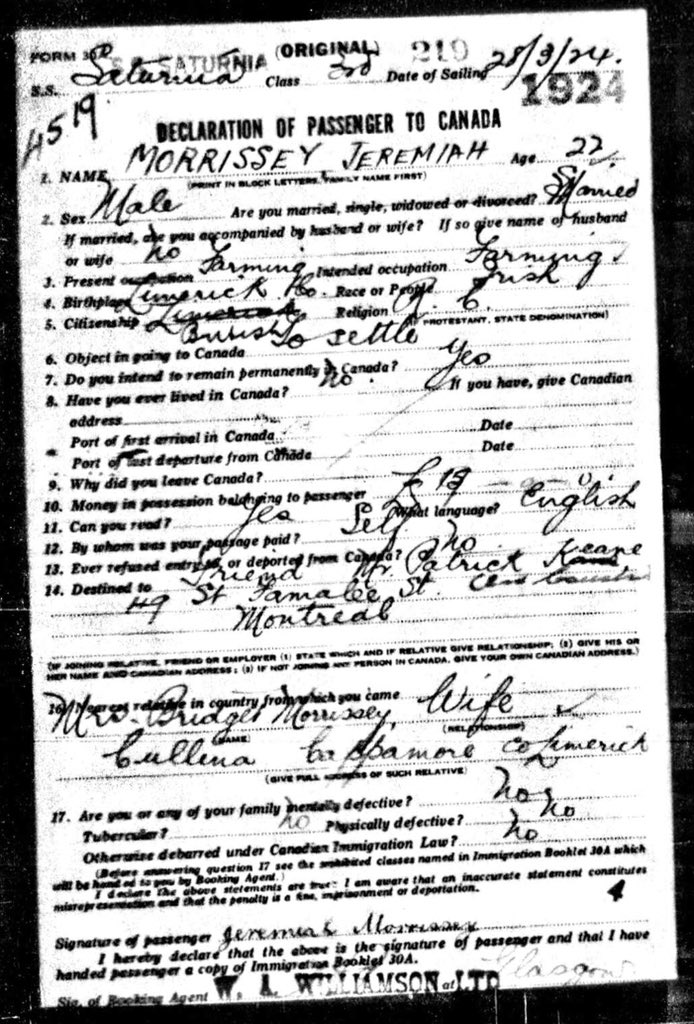 FORM 30D S.S. SATURNIA (ORIGINAL) 219
S.S. Saturnia Class 3rd Date of Sailing 28/3/24.
1924
4519
DECLARATION OF PASSENGER TO CANADA
1. NAME MORRISSEY JEREMIAH Age 22
(PRINT IN BLOCK LETTERS, FAMILY NAME FIRST)
2. Sex Male Are you married, single, widowed or divorced? Married
If married, are you accompanied by husband or wife? If so give name of husband
or wife no
3. Present occupation Farming Intended occupation Farming
4. Birthplace Limerick Co. Race or People Irish
5. Citizenship British Religion R. C.
(IF PROTESTANT, STATE DENOMINATION)
6. Object in going to Canada To settle
7. Do you intend to remain permanently in Canada? Yes
8. Have you ever lived in Canada? no. If you have, give Canadian
address
Port of first arrival in Canada Date
Port of last departure from Canada Date
9. Why did you leave Canada?
10. Money in possession belonging to passenger £ 19
11. Can you read? Yes What language? English
12. By whom was your passage paid? Self
13. Ever refused entry to, or deported from Canada? no
14. Destined to Friend Mr. Patrick Keane
49 St St.
Montreal
(IF JOINING RELATIVE, FRIEND OR EMPLOYER (1) STATE WHICH AND IF RELATIVE GIVE RELATIONSHIP; (2) GIVE HIS OR
HER NAME AND CANADIAN ADDRESS; (3) IF NOT JOINING ANY PERSON IN CANADA, GIVE YOUR OWN CANADIAN ADDRESS.)
16. Nearest relative in country from which you came
Mrs. Bridget Morrissey, Wife
(NAME) (RELATIONSHIP)
Cullena Cappamore Co Limerick
(GIVE FULL ADDRESS OF SUCH RELATIVE)
17. Are you or any of your family mentally defective? no
Tubercular? no Physically defective? no
Otherwise debarred under Canadian Immigration Law? no
(Before answering question 17 see the prohibited classes named in Immigration Booklet 30A which
will be handed to you by Booking Agent.)
I declare the above statements are true: I am aware that an inaccurate statement constitutes
misrepresentation and that the penalty is a fine, imprisonment or deportation.
Signature of passenger Jeremiah Morrissey
I hereby declare that the above is the signature of passenger and that I have
handed passenger a copy of Immigration Booklet 30A.
Sig. of Booking Agent W. A. WILLIAMSON LTD at Glasgow